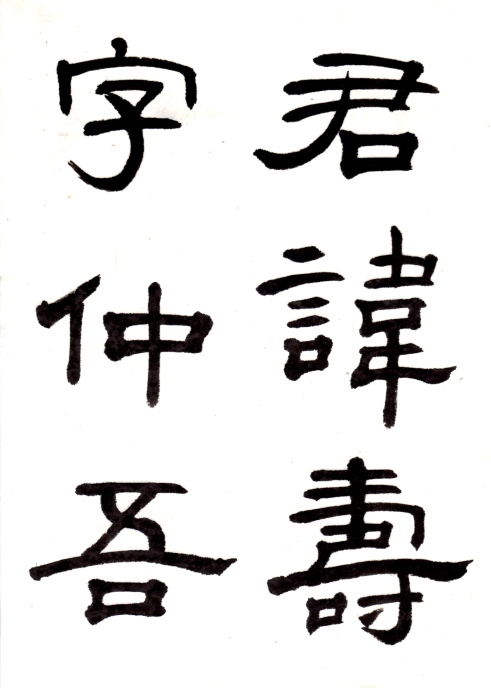 君諱壽
字仲吾